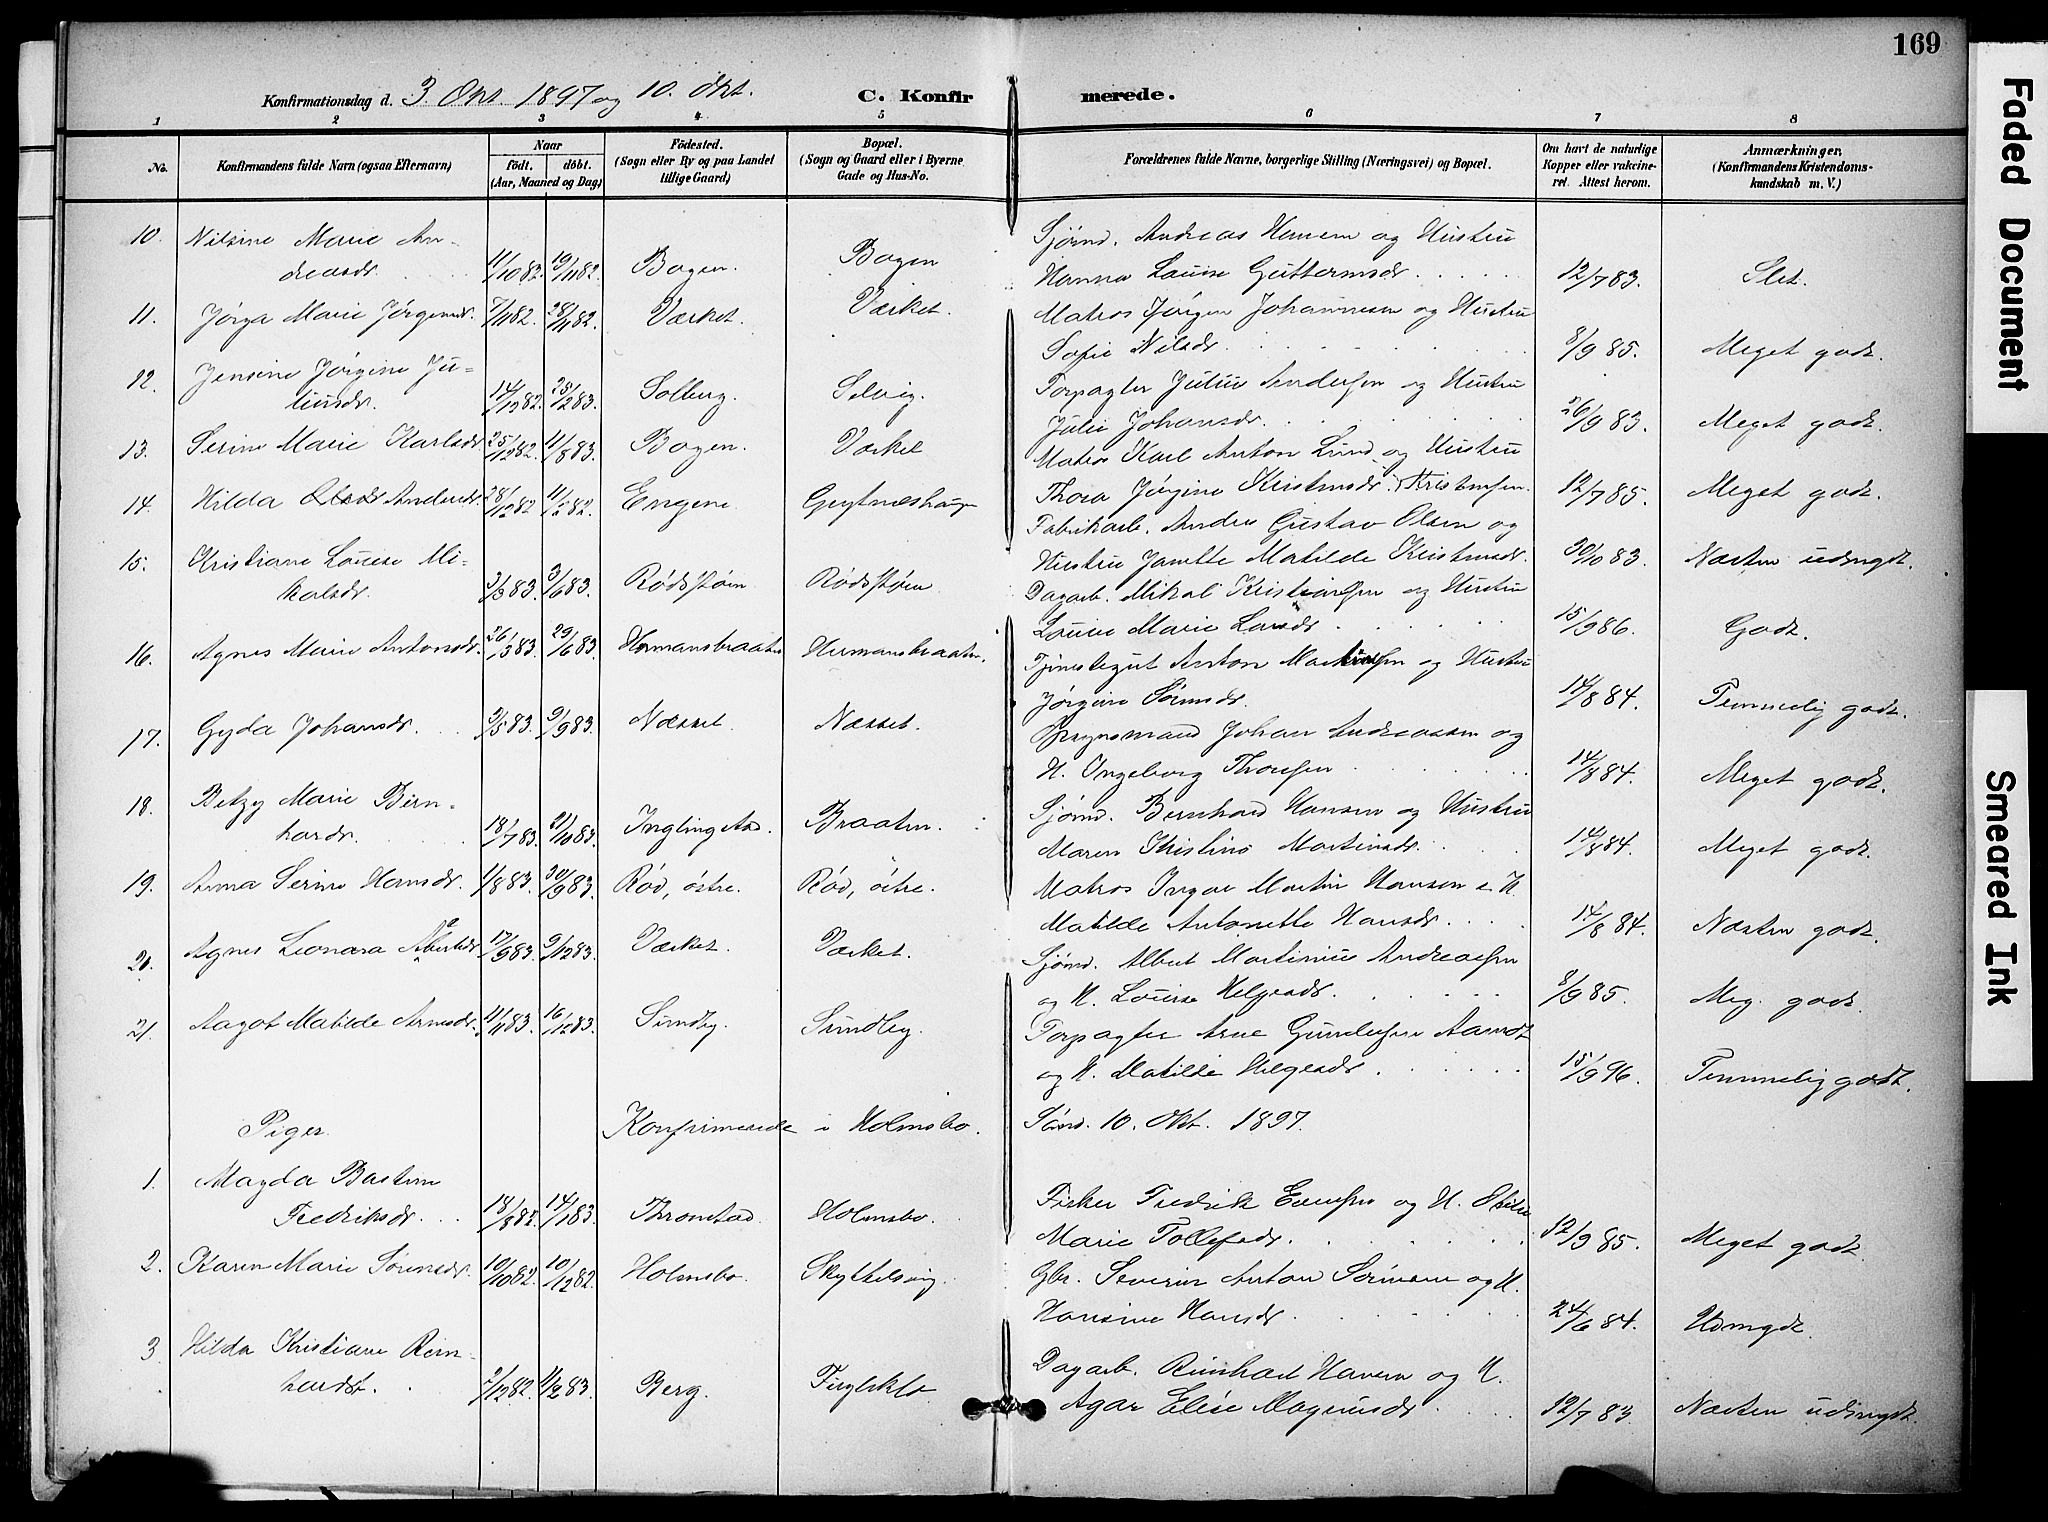 169
Konfirmationsdag d. 3. Okt. 1897 og 10. Okt.
C. Konfirmerede.
1 2 3 4 5 6 7 8
No. Konfirmandens fulde Navn (ogsaa Efternavn) Naar født. døbt. (Aar, Maaned og Dag) Fødested. (Sogn eller By og paa Landet tillige Gaard) Bopæl. (Sogn og Gaard eller i Byerne Gade og Hus-No. Forældrenes fulde Navne, borgerlige Stilling (Næringsvei) og Bopæl. Om havt de naturlige Kopper eller vakcineret. Attest herom. Anmærkninger, (Konfirmandens Kristendomskundskab m. V.)
10. Nilsine Marie An- Sjømd. Andreas Hansen og Hustru
dreasdr. 11/10 82. 19/11 82. Bogen. Bogen Hanna Louise Guttormsdr. 12/7 83. Slet.
11. Jørga Marie Jørgensdr. 7/11 82. 28/11 82. Værket. Værket. Matros Jørgen Johannesen og Hustru
Sofie Nilsdr. 8/9 85. Meget godt.
12. Jensine Jørgine Ju- Forpagter Julius Andersen og Hustru
liusdr. 14/12 82. 25/2 83. Solberg. Selvig. Julie Johansdr. 26/9 83. Meget godt.
13. Serine Marie Karlsdr. 25/12 82. 11/8 83. Bogen. Værket Matros Karl Anton Lund og Hustru
Thora Jørgine Kristensdr. Kristensen. 12/7 85. Meget godt.
14. Hilda Andersdr. 28/12 82 11/2 82. Engene. Fabrikarb. Anders Gustav Olsen og
Hustru Janette Matilde Kristensdr. 30/10 83. Næsten udmgdt.
15. Kristiane Louise Mi- Dagarb. Mikal Kristiansen og Hustru
kalsdr. 3/3 83. 3/6 83. Rødsstøen Rødsstøen Louise Marie Larsdr. 15/9 86. Godt.
16. Agnes Marie Antonsdr. 26/3 83. 29/6 83. Hermansbraaten Hermansbraaten. Anton Martinsen og Hustru
Jørgine Sørensdr. 14/8 84. Temmelig godt.
17. Gyda Johansdr. 9/5 83. 9/9 83. Næsset. Næsset. Opsynsmand Johan Andreassen og
H. Ingeborg Thoresen 14/8 84. Meget godt.
18. Betzy Marie Bern- Sjømd. Bernhard Hansen og Hustru
hardr. 18/7 83. 21/10 83. Inglingstad. Braaten. Maren Kristine Martinsdr. 14/8 84. Meget godt.
19. Anna Serine Hansdr. 1/8 83. 30/9 83. Rød, østre. Rød, østre. Matros Ingar Martin Hansen & H.
Matilde Antonette Hansdr. 14/8 84. Næsten godt.
20. Agnes Leonara Albertsdr. 17/9 83. 9/12 83. Værket. Værket. Sjømd. Albert Martinius Andreassen
og H. Louise Helgesdr. 8/9 85. Meg. godt
21. Aagot Matilde Arnesdr. 11/11 83. 16/12 83. Sundby. Sundby. Forpagter Arne Gundersen
og H. Matilde Helgesdr. 15/9 96. Temmelig godt.
Piger. Konfirmerede i Holmsbo. Sønd. 10. Okt. 1897.
1. Magda Bastine Fisker Fredrik Evensen og H.
Fredriksdr. 18/8 82. 14/1 83. Thronstad. Holmsbo. Marie Tollefsdr. 12/9 85. Meget godt.
2. Karen Marie Sørensdr. 10/10 82. 10/12 82. Holmsbo. Gbr. Severin Anton Sørensen og H.
Hansine Hansdr. 24/6 84. Udmgdt.
3. Hilda Kristiane Rein- Dagarb. Reinhard Hansen og H.
hardst. 2/12 82. 1/2 83. Berg. Agar Elise Magnusdr. 12/7 83. Næsten udmgdt.
Faded Document
Smeared Ink